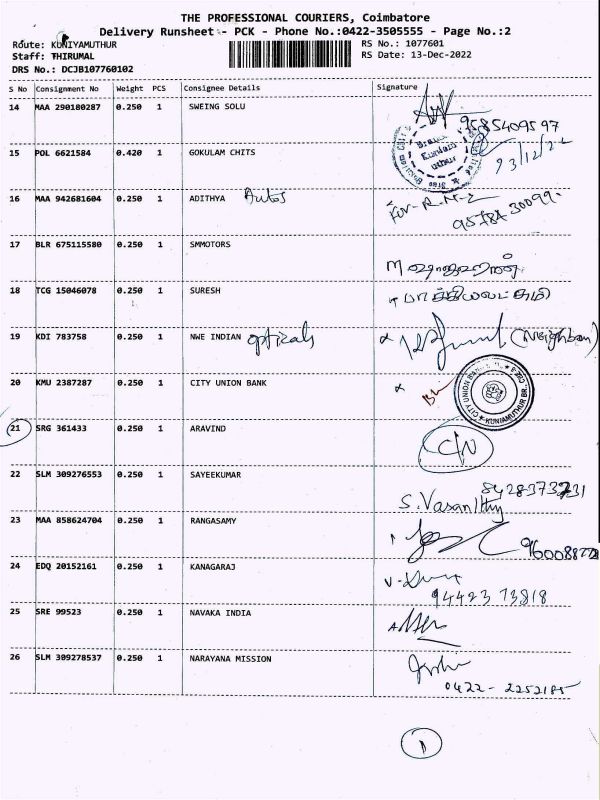 THE PROFESSIONAL COURIERS, Coimbatore
Delivery Runsheet - PCK - Phone No.:0422-3505555 - Page No.:2
Route: KUNIYAMUTHUR
RS No.: 1077601
Staff: THIRUMAL
RS Date: 13-Dec-2022
DRS No.: DCJB107760102
S No Consignment No Weight PCS Consignee Details Signature
14 MAA 290180287 0.250 1 SWEING SOLU
9585409597
15 POL 6621584 0.420 1 GOKULAM CHITS
16 MAA 942681604 0.250 1 ADITHYA Autos
17 BLR 675115580 0.250 1 SMMOTORS
18 TCG 15046078 0.250 1 SURESH
19 KDI 783758 0.250 1 NWE INDIAN opticals (Neighbour)
20 KMU 2387287 0.250 1 CITY UNION BANK
CITY UNION BANK
KUNIAMUTHUR BR.
21 SRG 361433 0.250 1 ARAVIND
22 SLM 309276553 0.250 1 SAYEEKUMAR
S. Vasanthy
23 MAA 858624704 0.250 1 RANGASAMY
24 EDQ 20152161 0.250 1 KANAGARAJ
94423 73818
25 SRE 99523 0.250 1 NAVAKA INDIA
26 SLM 309278537 0.250 1 NARAYANA MISSION
0422-2252185